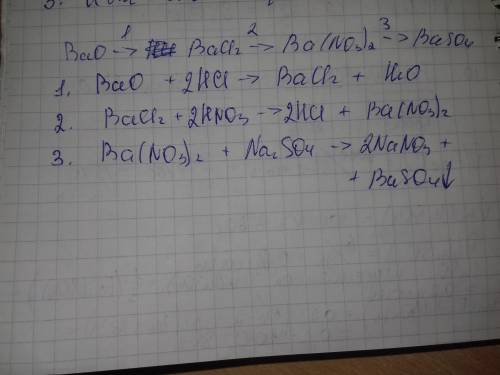 1 2 3
BaO → BaCl₂ → Ba(NO₃)₂ → BaSO₄
1. BaO + 2HCl → BaCl₂ + H₂O
2. BaCl₂ + 2HNO₃ → 2HCl + Ba(NO₃)₂
3. Ba(NO₃)₂ + Na₂SO₄ → 2NaNO₃ +
+ BaSO₄↓